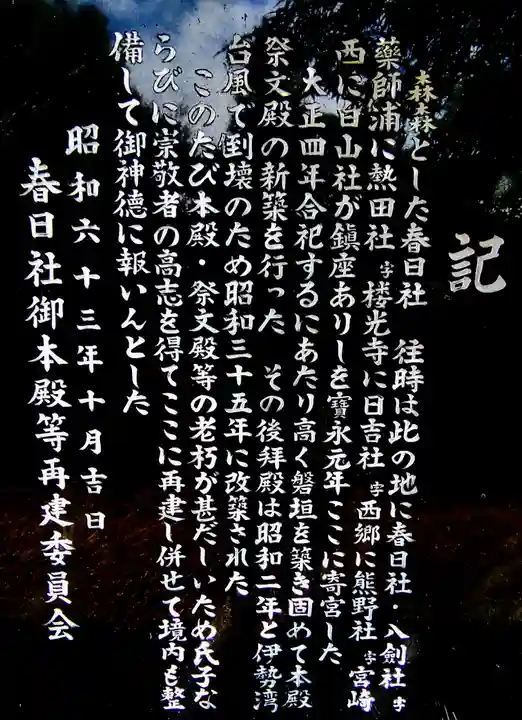 記
森森とした春日社 往時は此の地に春日社・八劍社 字
藥師浦に熱田社 字楼光寺に日吉社 字西郷に熊野社 字宮崎
西に白山社が鎮座ありしを寶永元年ここに寄宮した
大正四年合祀するにあたり高く磐垣を築き固めて本殿
祭文殿の新築を行った その後拝殿は昭和二年と伊勢湾
台風で倒壊のため昭和三十五年に改築された
このたび本殿・祭文殿等の老朽が甚だしいため氏子な
らびに崇敬者の高志を得てここに再建し併せて境内も整
備して御神徳に報いんとした
昭和六十三年十月吉日
春日社御本殿等再建委員会